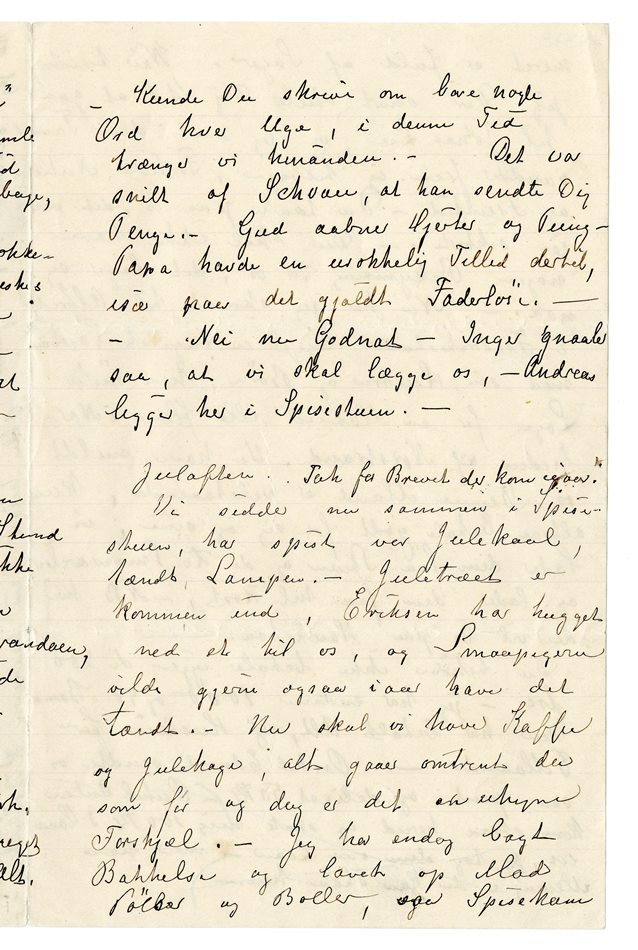 – Kunde Du skrive om bare nogle
Ord hver Uge, i denne Tid
trænger vi hinanden. – Det var
snilt af Schou, at han sendte Dig
Penge. – Gud aabner Hjerter og Pung –
Papa havde en urokkelig Tillid dertil,
især naar det gjaldt Faderløse. –
– Nei nu Godnat – Inger gnaaler
saa, at vi skal lægge os, – Andreas
ligger her i Spisestuen. –
Juleaften. . Tak for Brevet der kom igaar.
Vi sidder nu sammen i Spise-
stuen, har spist vor Julekaal,
tændt Lampen. – Juletræet er
kommen ind, Eriksen har hugget
ned et til os, og Smaapigerne
vilde gjerne ogsaa iaar have det
tændt. – Nu skal vi have Kaffe
og Julekage, alt gaaer omtrent
som før og dog er det en uhyre
Forskjæl. – Jeg har endog bagt
Bakkelse og lavet op Mad
Pølser og Boller, Spisekam
mle
bage,
okke-
eske
Stund
ikke
randaen,
de
eget
alt.